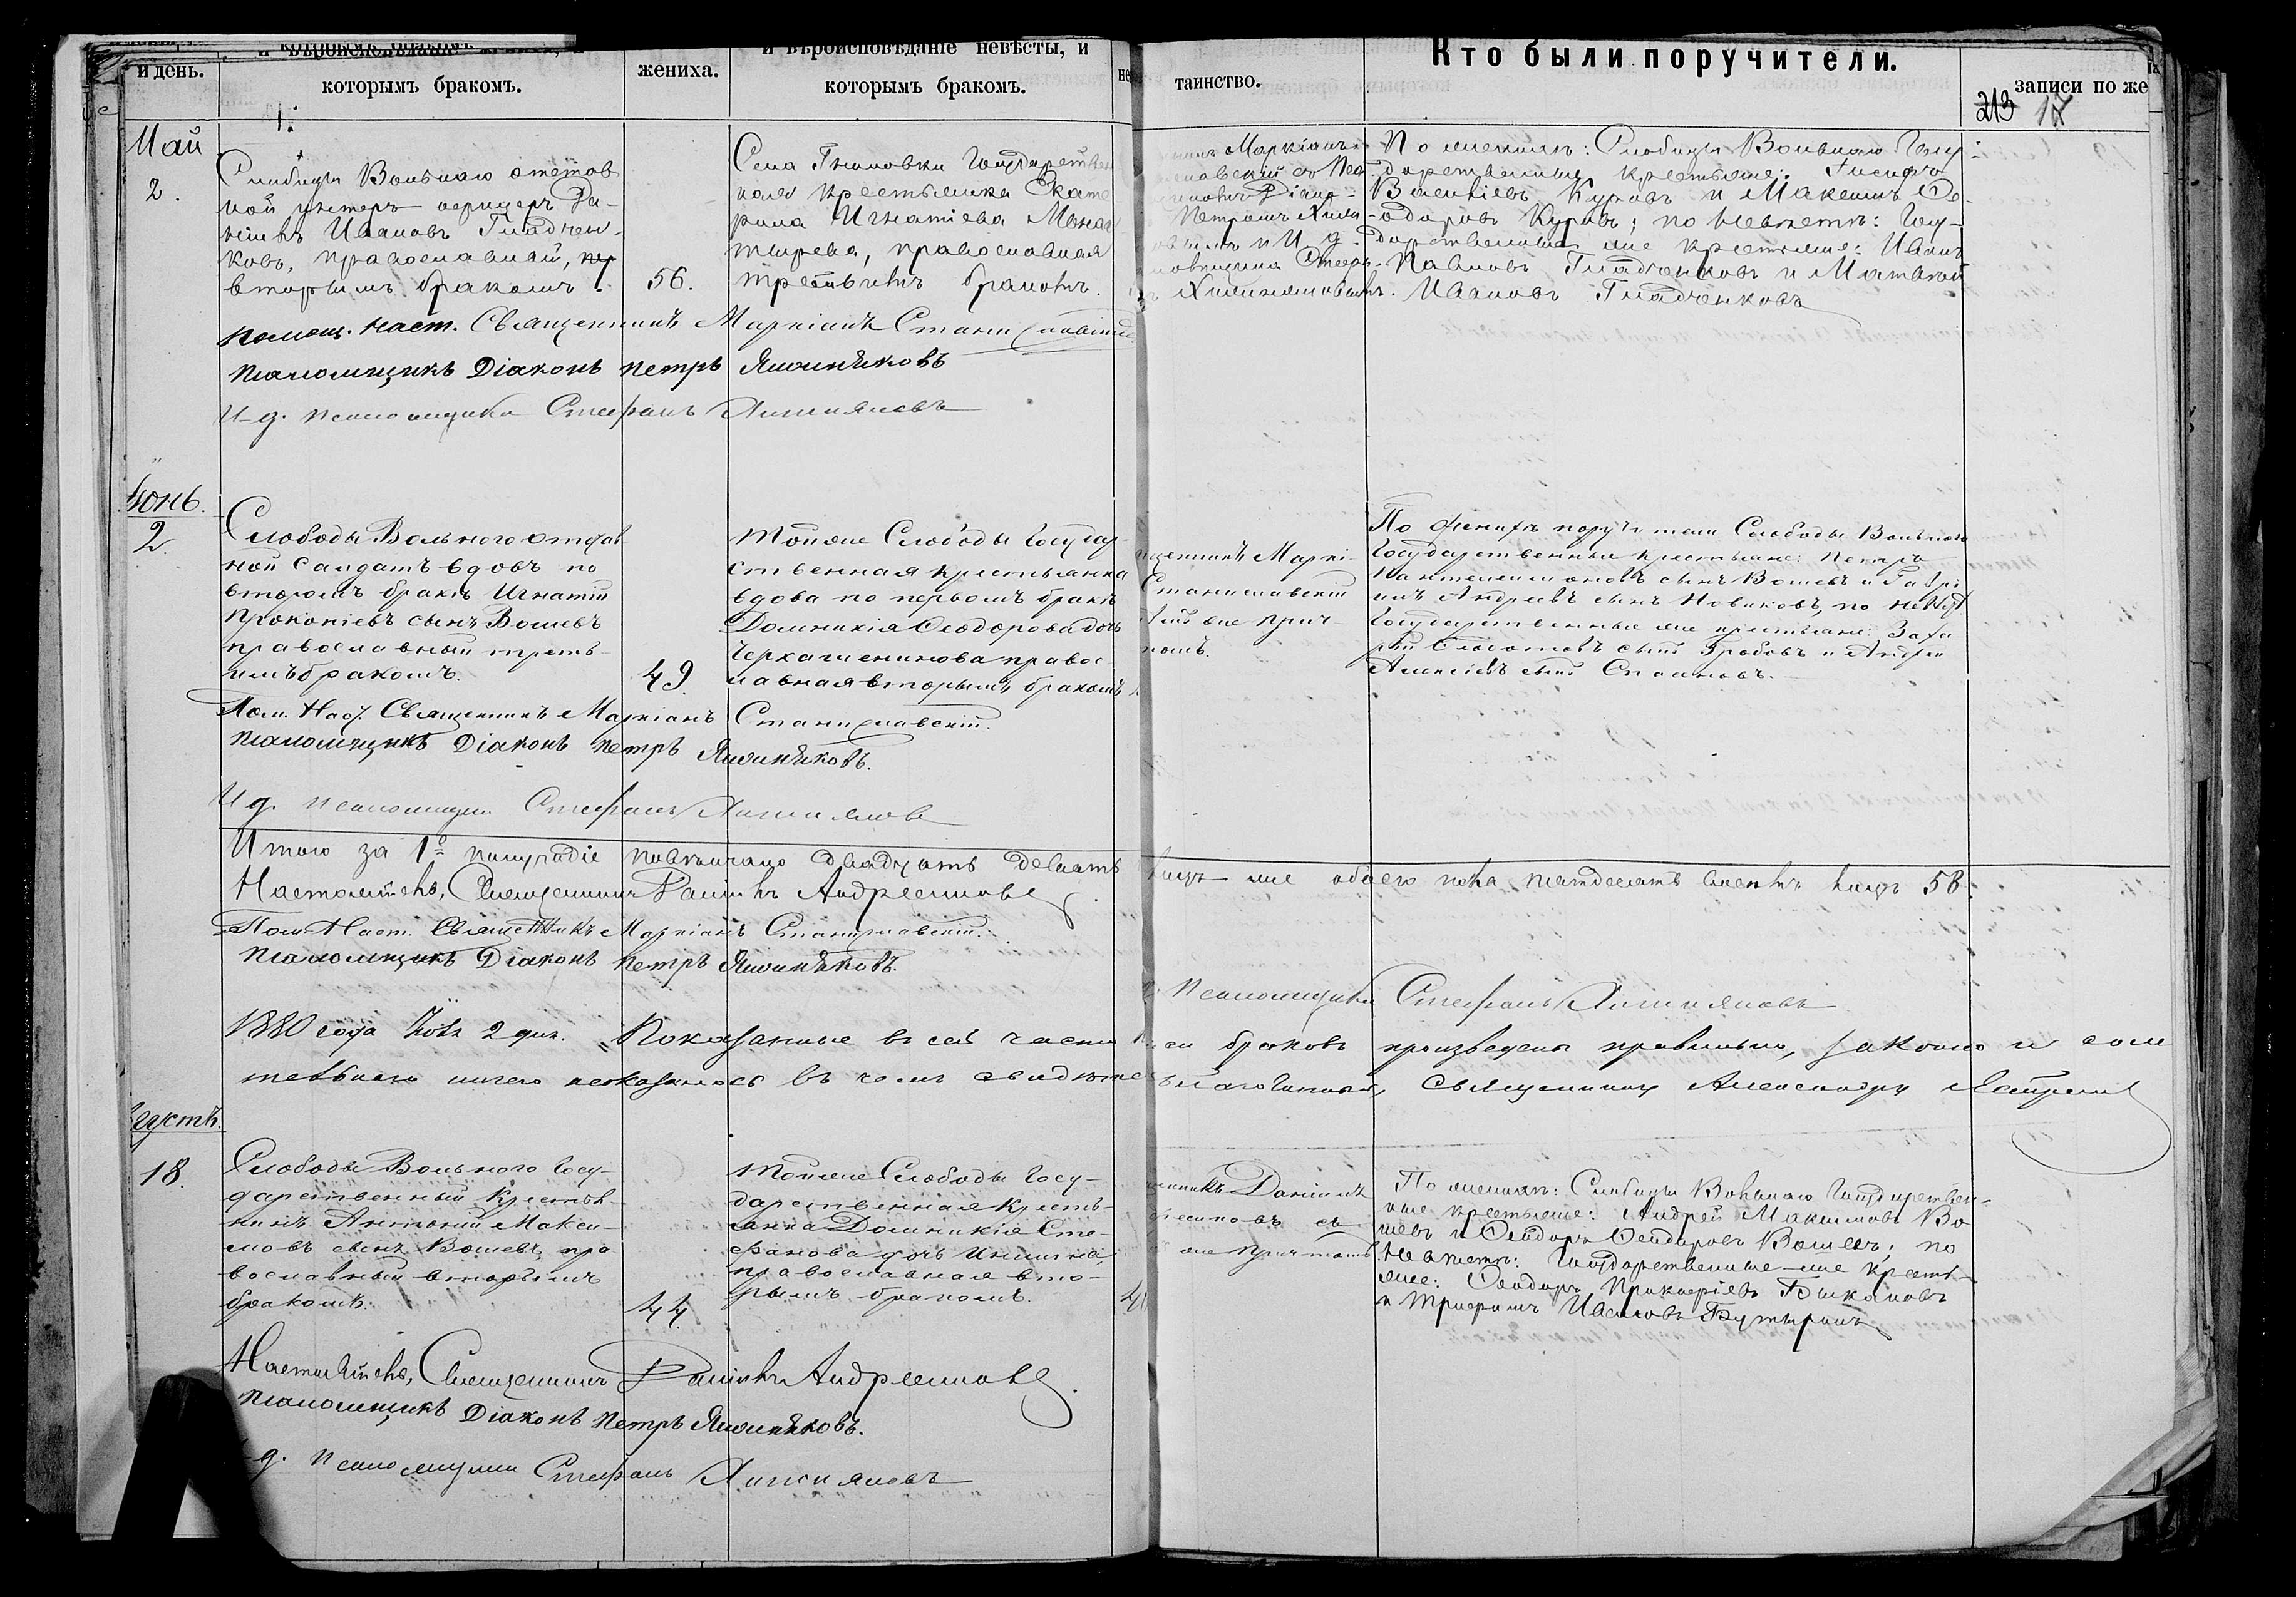 и день.
которымъ бракомъ.
жениха.
и вѣроисповѣданіе невѣсты, и
которымъ бракомъ.
таинство.
Кто были поручители.
записи по же
213 17
1.
Май
2.
Слободы Вольнаго отстав
ной унтеръ офицеръ
Ивановъ Гладчен-
ковъ, православный,
вторымъ бракомъ.
56.
Села Государствен
ная крестьянка Екате
рина Игнатіева
православная
третьимъ бракомъ.
Маркіанъ
Діако-
Петромъ
и И. д.
По женихѣ: Слободы Вольнаго Госу-
дарственные крестьяне:
Василіевъ Куровъ и Максимъ Ѳе-
одоровъ Куровъ; по невѣстѣ: Госу-
дарственные же крестьяне: Иванъ
Павловъ Гладченковъ и Матвей
Ивановъ Гладченковъ
Помощ. Наст. Священникъ Маркіанъ Станиславскій
Псаломщикъ Діаконъ Петръ
И. д. псаломщика Стефанъ
Іюнь.
2.
Слободы Вольного отстав
ной солдатъ вдовъ по
второмъ бракѣ Игнатій
Прокопіевъ сынъ Вошевъ
православный треть-
имъ бракомъ.
49
Тойже Слободы Государ-
ственная крестьянка
вдова по первомъ бракѣ
Домникія Ѳеодорова дочь
правос-
лавная вторымъ бракомъ
щенникъ Маркі-
Станиславскій
же прич-
томъ.
По женихѣ поручители Слободы Вольного
Государственные крестьяне: Петръ
Пантелеимоновъ сынъ Вошевъ и Гаврі
илъ Андреевъ сынъ Новиковъ, по невѣстѣ
Государственные же крестьяне: Заха
рій сынъ Грабовъ и Андрей
Алексіевъ сынъ
Пом. Наст. Священникъ Маркіанъ Станиславскій.
Псаломщикъ Діаконъ Петръ
И. д. псаломщика Стефанъ
Итого за 1е полугодіе повѣнчано двадцать девять
лицъ же обоего пола пятдесятъ восемь лицъ 58.
Настоятель, Священникъ Даніилъ
Пом. Наст. Священникъ Маркіанъ Станиславскій.
Псаломщикъ Діаконъ Петръ
Псаломщика Стефанъ
1880 года Іюня 2 дня. Показанные въ сей части
браковъ произведены правильно, законно и сом
тельнаго ничего неоказалось въ чемъ свидѣте
Благочинный, Священникъ Александръ
густъ.
18.
Слободы Вольного Госу-
дарственный крестья-
нинъ Антоній Макси-
мовъ сынъ Вошевъ, пра
вославный вторымъ
бракомъ.
44
Тойже Слободы Госу-
дарственная кресть-
янка Домникія Сте-
фанова дочь
православная вто-
рымъ бракомъ.
Даніилъ
съ
же причтомъ
По женихѣ: Слободы Вольнаго Государствен-
ные крестьяне: Андрей Максимовъ Во
шевъ и Ѳеодоръ Ѳеодоровъ Вошевъ; по
невѣстѣ: Государственные же кресть-
яне: Ѳеодоръ
и Трифонъ Ивановъ
Настоятель, Священникъ Даніилъ
Псаломщикъ Діаконъ Петръ
д. псаломщика Стефанъ